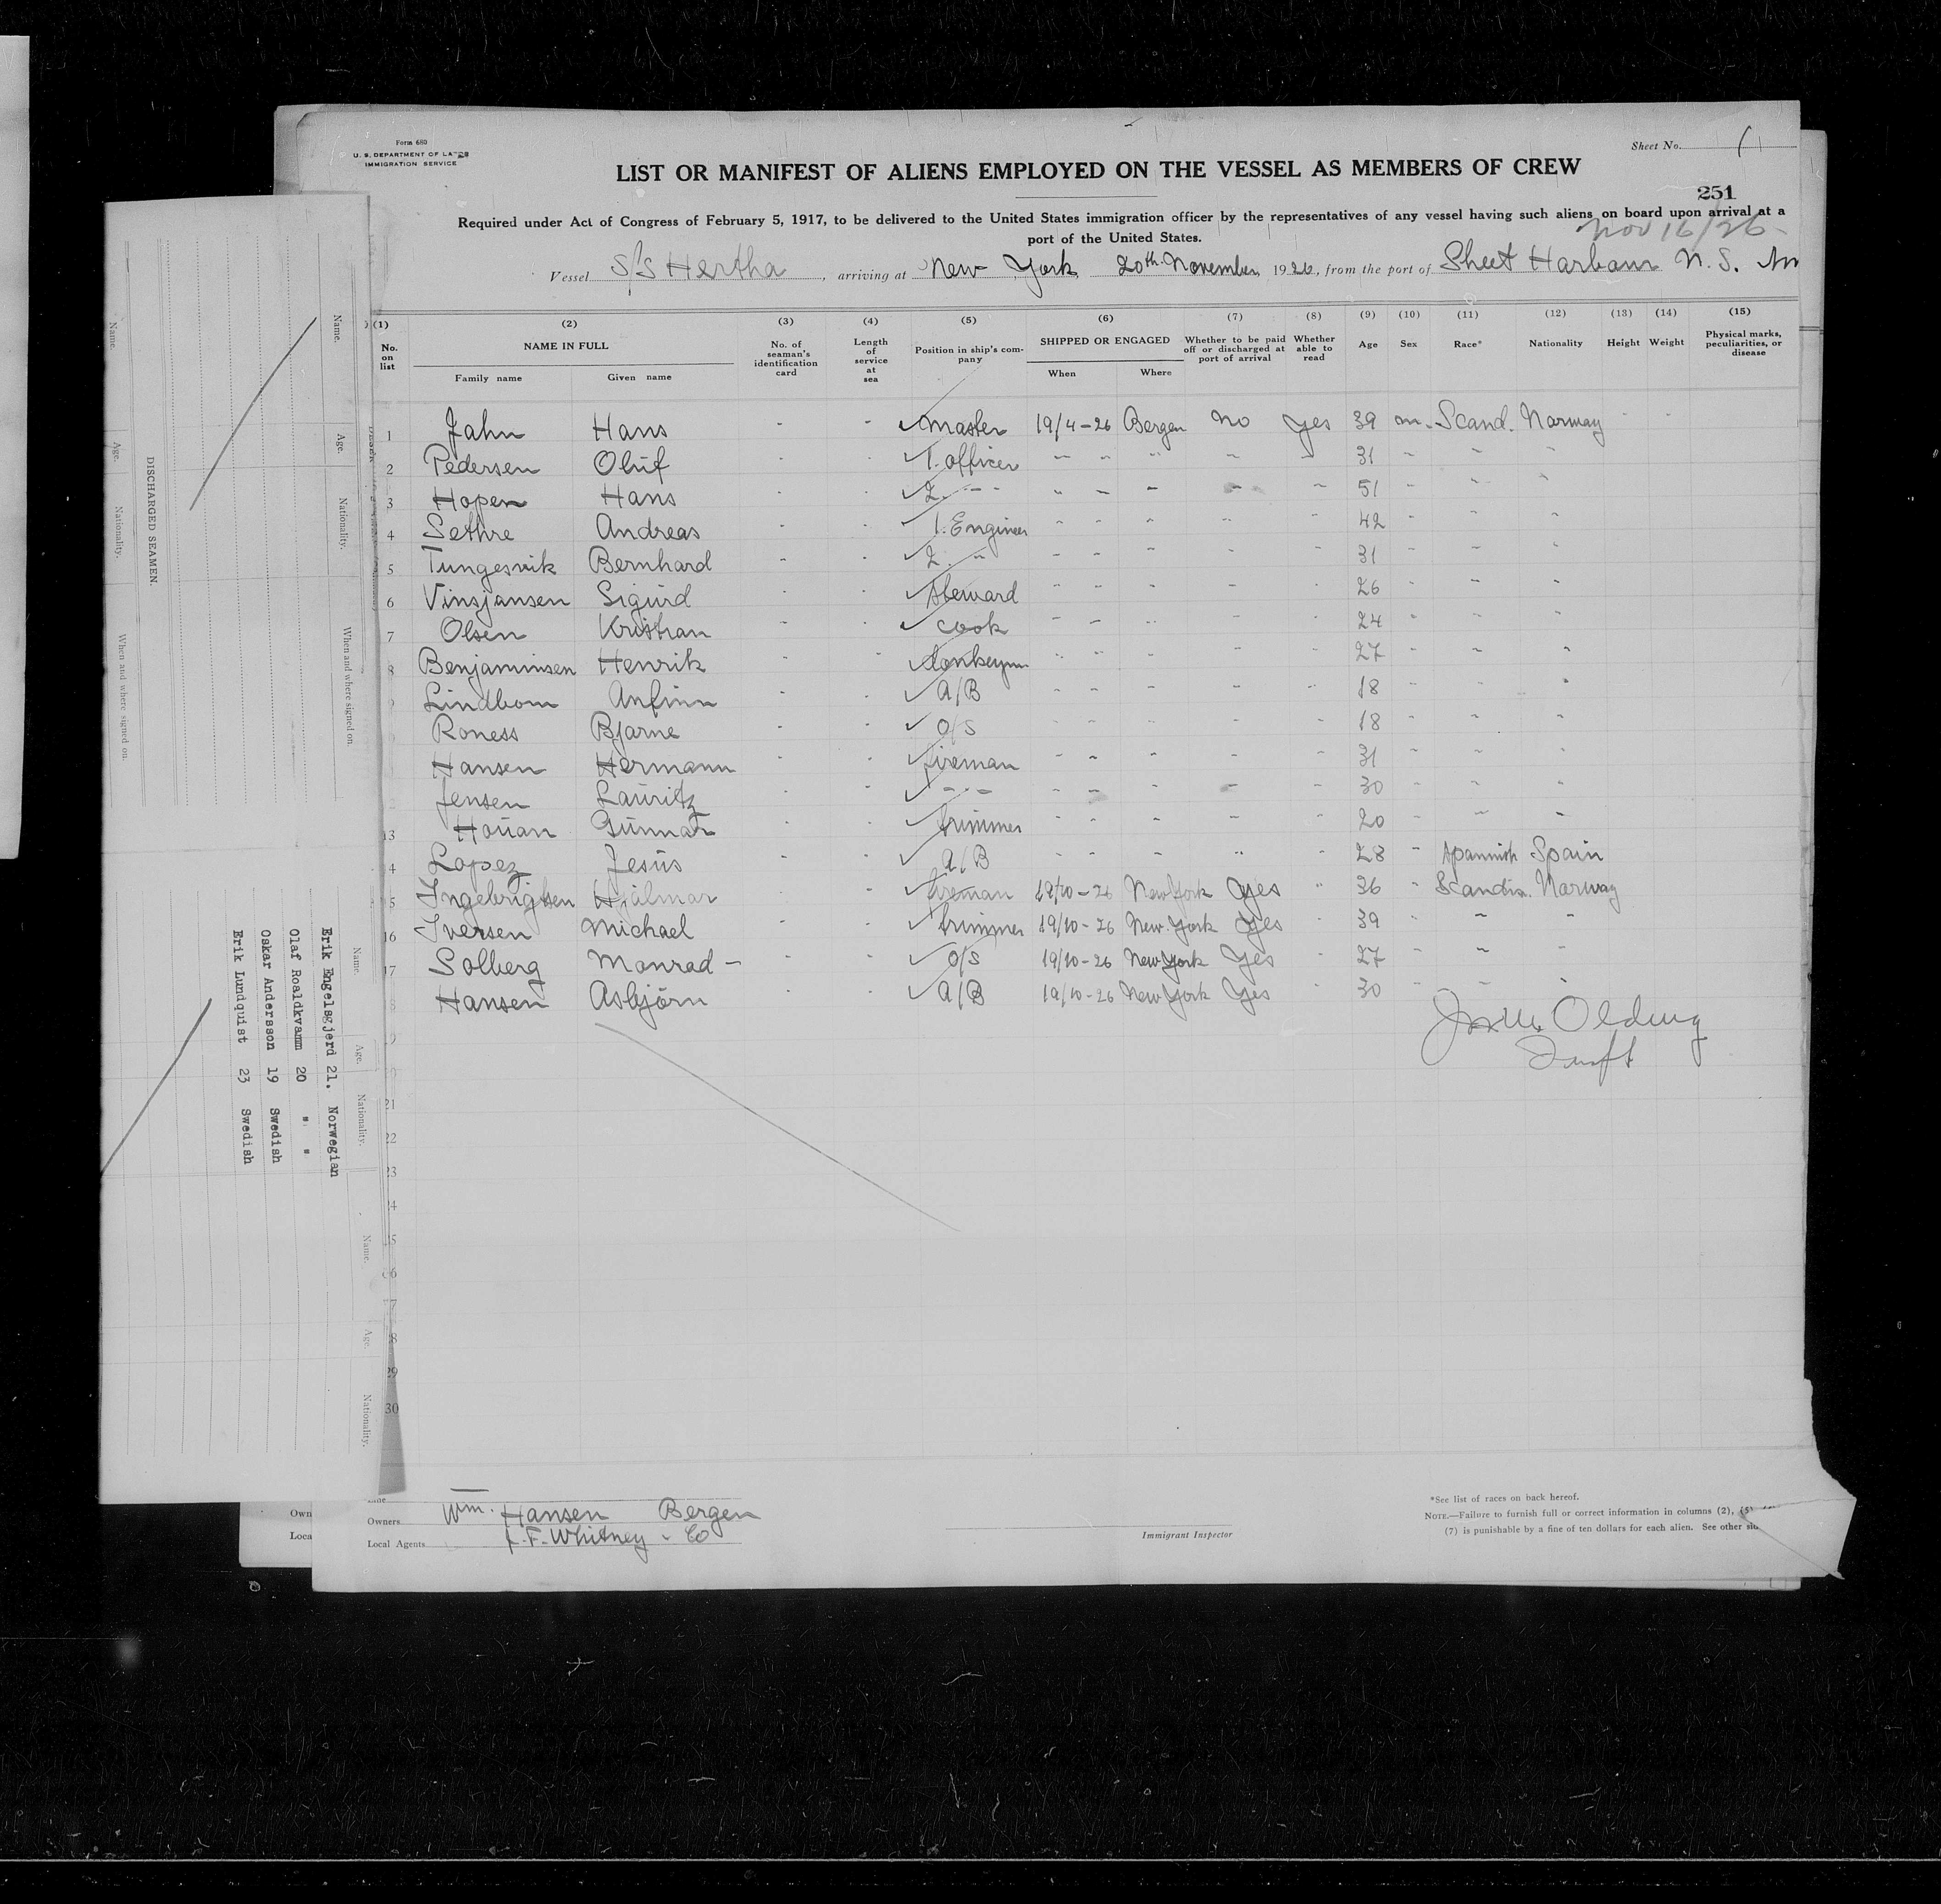 Form 680
U. S. DEPARTMENT OF LABOR
IMMIGRATION SERVICE
Sheet No. 1
LIST OR MANIFEST OF ALIENS EMPLOYED ON THE VESSEL AS MEMBERS OF CREW
251
Required under Act of Congress of February 5, 1917, to be delivered to the United States immigration officer by the representatives of any vessel having such aliens on board upon arrival at a
port of the United States.
Nov 16/26
Vessel S/S Hertha, arriving at New York 20th November, 1926, from the port of Sheet Harbour N. S.
(1) (2) (3) (4) (5) (6) (7) (8) (9) (10) (11) (12) (13) (14) (15)
No. on list NAME IN FULL Family name Given name No. of seaman's identification card Length of service at sea Position in ship's company SHIPPED OR ENGAGED When Where Whether to be paid off or discharged at port of arrival Whether able to read Age Sex Race* Nationality Height Weight Physical marks, peculiarities, or disease
1 Jahn Hans - - Master 19/4-26 Bergen No Yes 39 m. Scand. Norway - -
2 Pedersen Oluf - - 1. officer " " " " " 31 " " "
3 Hopen Hans - - 2. " " " " " " 51 " " "
4 Sethre Andreas - - 1. Engineer " " " " " 42 " " "
5 Tungesvik Bernhard - - 2. " " " " " " 31 " " "
6 Vinsjansen Sigurd - - Steward " " " " " 26 " " "
7 Olsen Kristian - - cook " " " " " 24 " " "
8 Benjaminsen Henrik - - donkeymn " " " " " 27 " " "
Lindbom Anfinn - - A/B " " " " " 18 " " "
Roness Bjarne - - O/S " " " " " 18 " " "
Hansen Hermann - - fireman " " " " " 31 " " "
Jensen Lauritz - - " " " " " " 30 " " "
13 Houan Gunnar - - trimmer " " " " " 20 " " "
14 Lopez Jesus - - A/B " " " " " 28 " Spannish Spain
15 Ingebrigtsen Hjalmar - - fireman 19/10-26 New York Yes " 36 " Scandin. Norway
16 Iversen Michael - - trimmer 19/10-26 New York Yes " 39 " " "
17 Solberg Monrad - - - O/S 19/10-26 New York Yes " 27 " " "
Hansen Asbjörn - - A/B 19/10-26 New York Yes " 30 " " "
21
22
23
29
30
Owners Wm. Hansen Bergen
Local Agents F. Whitney & Co
Immigrant Inspector
*See list of races on back hereof.
NOTE.—Failure to furnish full or correct information in columns (2), (5)
(7) is punishable by a fine of ten dollars for each alien. See other
Own
Loca
DISCHARGED SEAMEN.
Name. Age. Nationality. When and where signed on.
Name. Age. Nationality. When and where signed on.
Name. Age. Nationality.
Erik Engelsgjerd 21. Norwegian
Olaf Roaldkvamm 20 " "
Oskar Andersson 19 Swedish
Erik Lundquist 23 Swedish
Name. Age. Nationality.